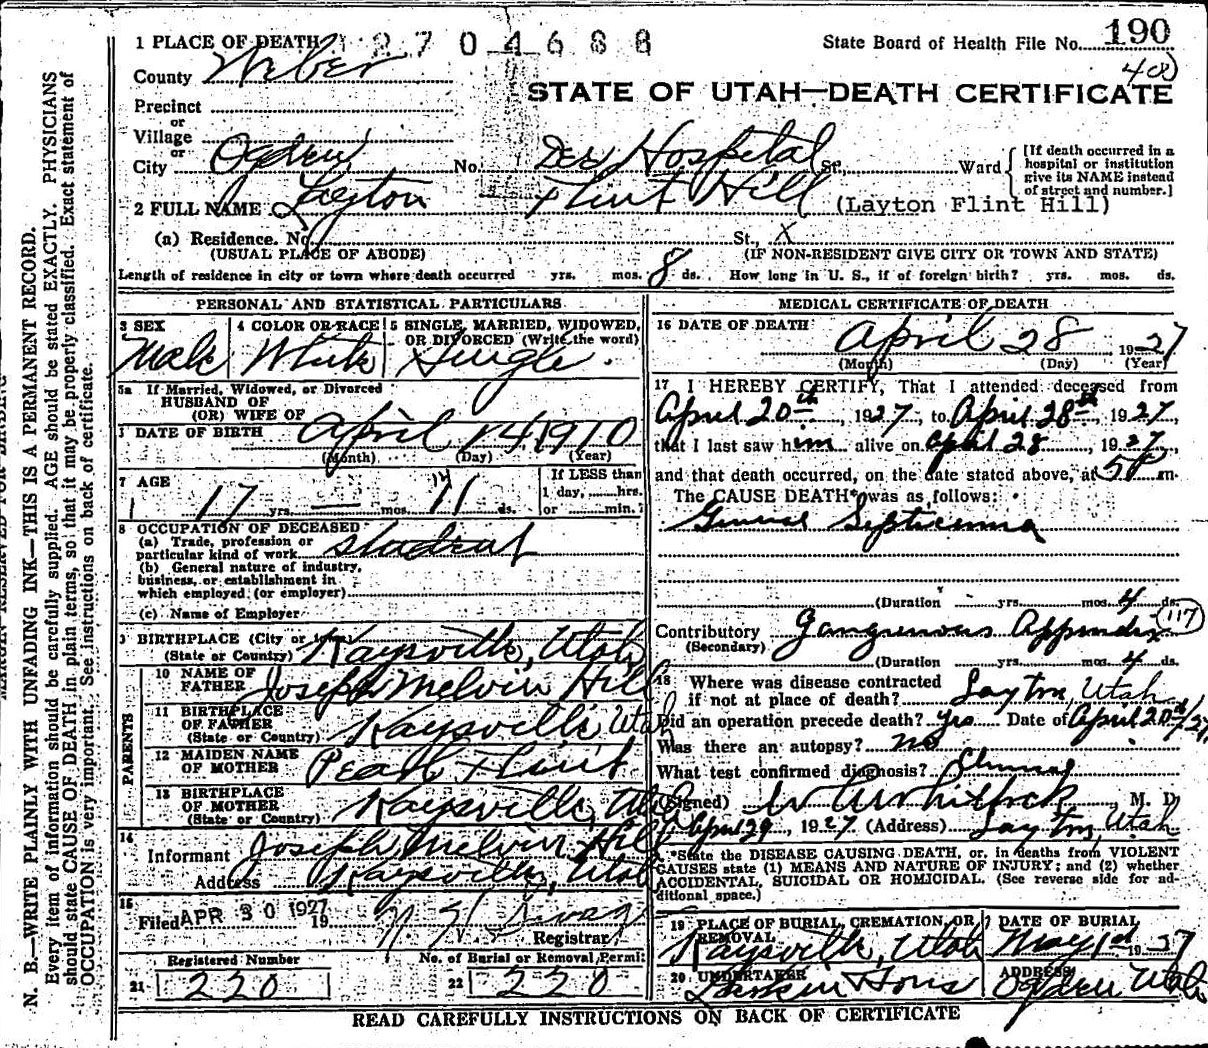 1 PLACE OF DEATH 2704688 State Board of Health File No. 190
County Weber 40
STATE OF UTAH—DEATH CERTIFICATE
Precinct
or
Village
or
City Ogden No. Dee Hospital St., Ward
[If death occurred in a hospital or institution give its NAME instead of street and number.]
2 FULL NAME Layton Flint Hill (Layton Flint Hill)
(a) Residence. No. St., X
(USUAL PLACE OF ABODE) (IF NON-RESIDENT GIVE CITY OR TOWN AND STATE)
Length of residence in city or town where death occurred yrs. mos. 8 ds. How long in U. S., if of foreign birth? yrs. mos. ds.
PERSONAL AND STATISTICAL PARTICULARS
3 SEX 4 COLOR OR RACE 5 SINGLE, MARRIED, WIDOWED, OR DIVORCED (Write the word)
Male White Single
5a If Married, Widowed, or Divorced
HUSBAND OF
(OR) WIFE OF
DATE OF BIRTH April 14 1910
(Month) (Day) (Year)
7 AGE 17 yrs. — mos. 14 ds.
If LESS than
1 day, hrs.
or min.
8 OCCUPATION OF DECEASED
(a) Trade, profession or
particular kind of work Student
(b) General nature of industry,
business, or establishment in
which employed (or employer)
(c) Name of Employer
9 BIRTHPLACE (City or town)
(State or Country) Kaysville, Utah
PARENTS
10 NAME OF
FATHER Joseph Melvin Hill
11 BIRTHPLACE
OF FATHER
(State or Country) Kaysville Utah
12 MAIDEN NAME
OF MOTHER Pearl Flint
13 BIRTHPLACE
OF MOTHER
(State or Country) Kaysville, Utah
14
Informant Joseph Melvin Hill
Address Kaysville, Utah
15
Filed APR 30 1927 19
Registrar
Registered Number No. of Burial or Removal Permit
21 220 22 220
MEDICAL CERTIFICATE OF DEATH
16 DATE OF DEATH
April 28 1927
(Month) (Day) (Year)
17 I HEREBY CERTIFY, That I attended deceased from
April 20th, 1927, to April 28th, 1927,
that I last saw him alive on April 28, 1927,
and that death occurred, on the date stated above, at 5 P m.
The CAUSE DEATH* was as follows:
General Septicemia
(Duration yrs. mos. 4 ds.
Contributory Gangrenous Appendix 117
(Secondary)
(Duration yrs. mos. 4 ds.
18 Where was disease contracted
if not at place of death? Layton, Utah
Did an operation precede death? yes Date of April 20th/27
Was there an autopsy? no
What test confirmed diagnosis? Clinical
(Signed) M. D.
April 29, 1927 (Address) Layton, Utah
*State the DISEASE CAUSING DEATH, or, in deaths from VIOLENT
CAUSES state (1) MEANS AND NATURE OF INJURY; and (2) whether
ACCIDENTAL, SUICIDAL OR HOMICIDAL. (See reverse side for additional space.)
19 PLACE OF BURIAL, CREMATION, OR REMOVAL DATE OF BURIAL
Kaysville, Utah May 1st 1927
20 UNDERTAKER ADDRESS
Larkin & Sons Ogden Utah
READ CAREFULLY INSTRUCTIONS ON BACK OF CERTIFICATE
N. B.—WRITE PLAINLY WITH UNFADING INK—THIS IS A PERMANENT RECORD.
Every item of information should be carefully supplied. AGE should be stated EXACTLY. PHYSICIANS
should state CAUSE OF DEATH in plain terms, so that it may be properly classified. Exact statement of
OCCUPATION is very important. See instructions on back of certificate.